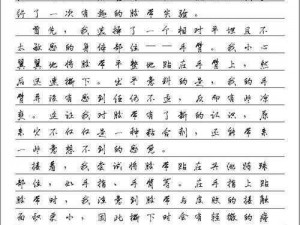 行了一次有趣的胶带实验。
首先，我选择了一个相对平坦且不
太敏感的身体部位——手臂。我小心
翼翼地将胶带平整地贴在手臂上，然
后迅速撕下。出乎意料的是，我的手
臂并没有感到任何不适，反而有些凉
爽。这让我对胶带有了新的认识，原
来它不仅仅是一种粘合剂，还能带来
一些意想不到的感觉。
接着，我尝试将胶带贴在其他特殊
部位，如手指、手臂等。在手指上贴
胶带时，我注意到胶带与皮肤的接触
面积更小，因此撕下时会有轻微的疼